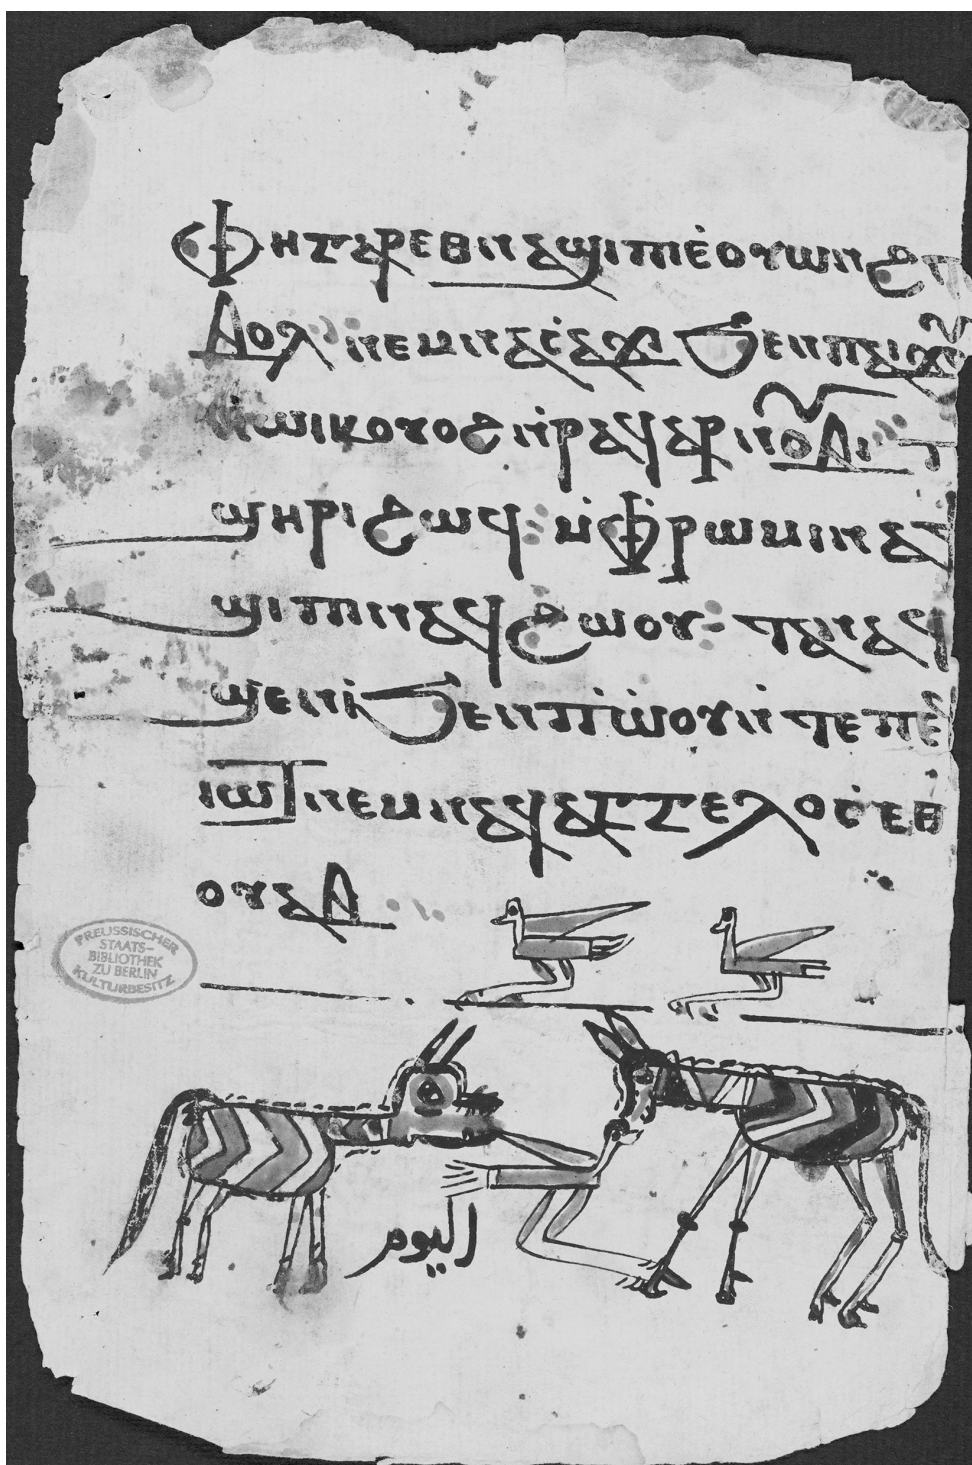 ⲫⲏⲅⲁⲣⲉⲑⲛⲁϣⲓⲡⲓⲉ̀ⲟⲩⲱⲛϩ
ⲃⲟⲗ ⲛⲉⲙⲛⲁⲥⲁϫⲓ ϧⲉⲛⲡⲁⲓϫⲱⲟⲩ
ⲛⲱⲓⲕⲟⲩⲟϩ ⲛ̀ⲣⲁϥⲁⲣⲛⲟⲃⲓ ⲡ
ϣⲏⲣⲓϩⲱϥ ⲙ̀ⲫⲣⲱⲙⲓⲛⲁϯ
ϣⲓⲡⲓⲛⲁϥϩⲱⲟⲩ ⲧⲁⲛⲁϥ
ϣⲉⲛⲓ̀ϧⲉⲛⲡⲓ̀ⲱ̀ⲟⲩⲛ̀ⲧⲉⲡⲉϥ
ⲓⲱⲧⲛⲉⲙⲛⲁϥⲁⲅⲅⲉⲗⲟⲥⲉⲑ
ⲟⲩⲁⲃ
PREUSSISCHER
STAATS-
BIBLIOTHEK
ZU BERLIN
KULTURBESITZ
اليوم